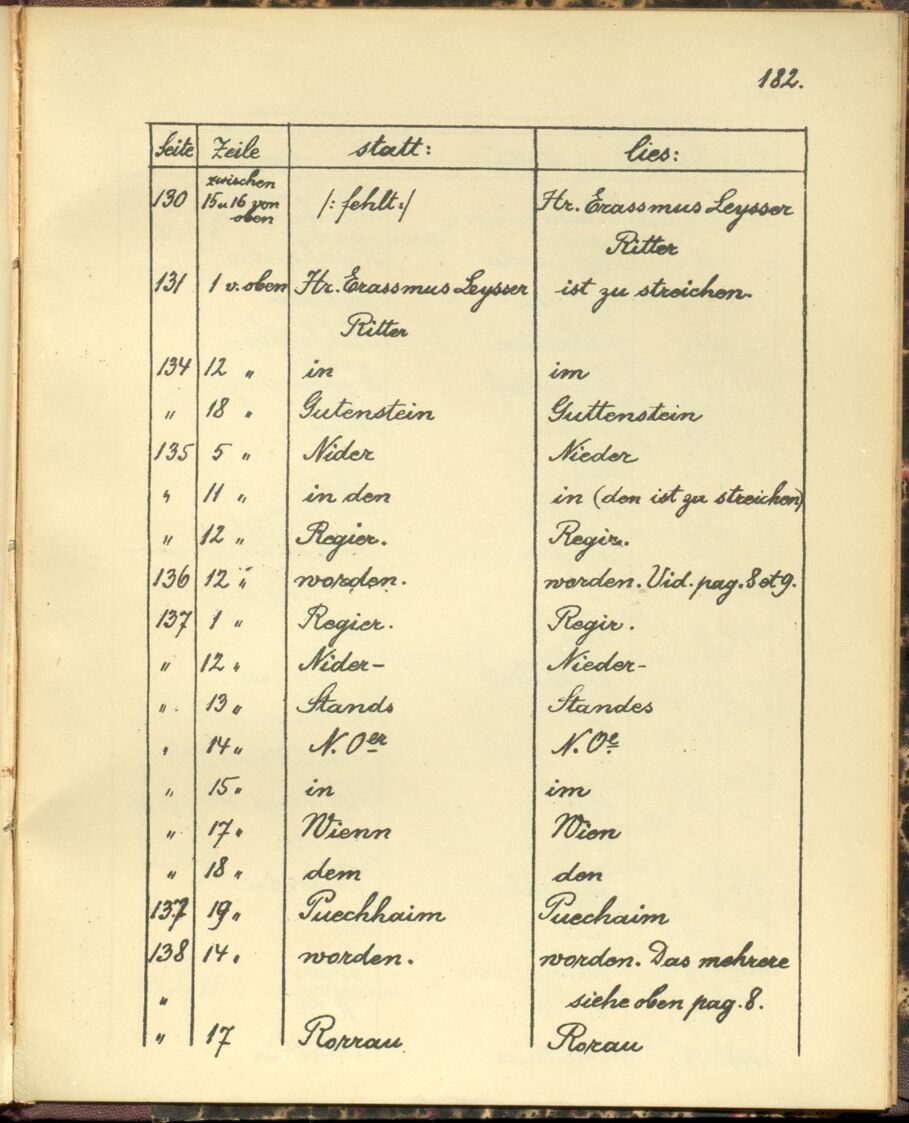 182.
Seite Zeile statt: lies:
130 zwischen 15 u 16 von oben /: fehlt :/ Hr. Erassmus Leysser
Ritter
131 1 v. oben Hr. Erassmus Leysser ist zu streichen.
Ritter
134 12 " in im
" 18 " Gutenstein Guttenstein
135 5 " Nider Nieder
" 11 " in den in (den ist zu streichen)
" 12 " Regier. Regir.
136 12 " worden. worden. Vid. pag. 8 et 9.
137 1 " Regier. Regir.
" 12 " Nider- Nieder-
" 13 " Stands Standes
" 14 " N. Oer N. Oe
" 15 " in im
" 17 " Wienn Wien
" 18 " dem den
137 19 " Puechhaim Puechaim
138 14 " worden. worden. Das mehrere
" siehe oben pag. 8.
" 17 Rorrau Rorau